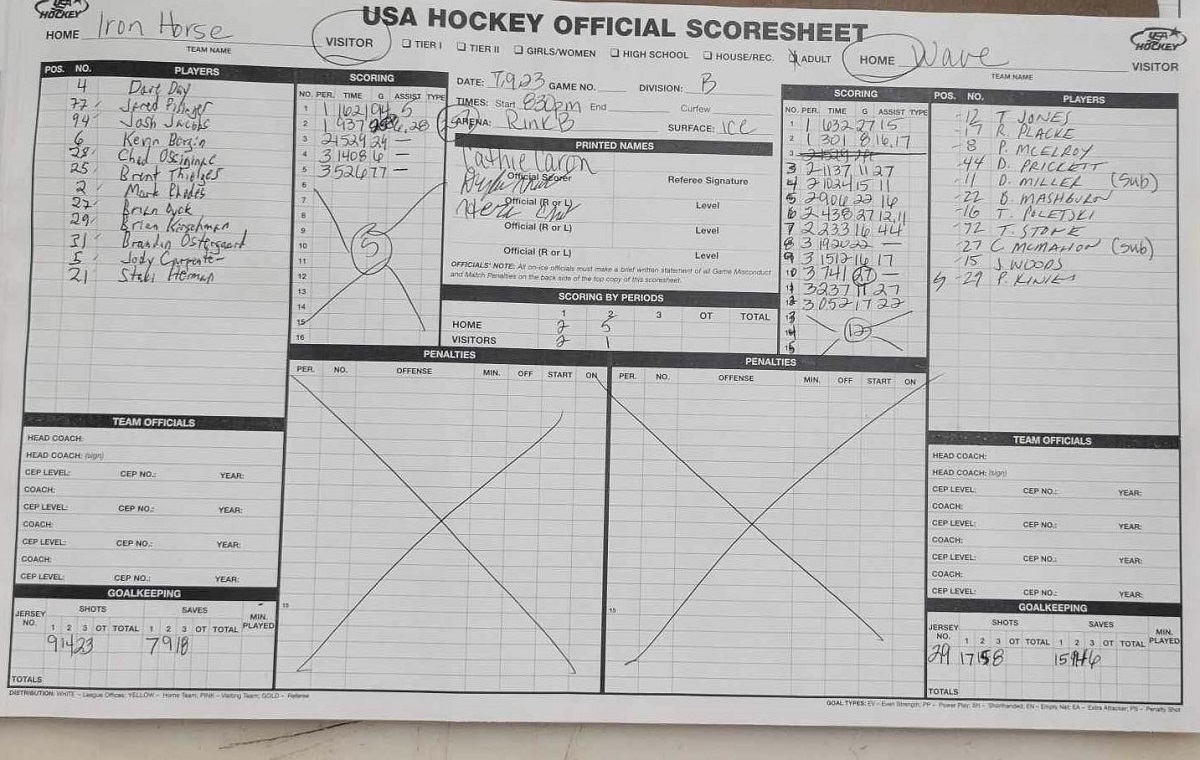 USA HOCKEY
USA HOCKEY OFFICIAL SCORESHEET
USA HOCKEY
HOME Iron Horse
TEAM NAME
VISITOR
TIER I TIER II GIRLS/WOMEN HIGH SCHOOL HOUSE/REC. ADULT
HOME Wave
TEAM NAME
VISITOR
POS. NO. PLAYERS
4 Dave Day
77
99 Josh Jacobs
6 Kevin
28 Chad
25 Brent
2 Mark
27 Brian Dyck
29 Brian
31 Brandin Ostergaard
5 Jody Carpenter
21 Staci Herman
SCORING
NO. PER. TIME G ASSIST TYPE
1 1 1621 94 5
2 1 937 6, 28
3 2 4529 29 —
4 3 1408 6 —
5 3 526 77 —
6
7
8
9
10
11
12
13
14
15
16
5
DATE: 7.9.23 GAME NO. DIVISION: B
TIMES: Start 8:30pm End Curfew
ARENA: Rink B SURFACE: ICE
PRINTED NAMES
Official Scorer Referee Signature
Official (R or L) Level
Official (R or L) Level
Official (R or L) Level
OFFICIALS' NOTE: All on-ice officials must make a brief written statement of all Game Misconduct
and Match Penalties on the back side of the top copy of this scoresheet.
SCORING BY PERIODS
1 2 3 OT TOTAL
HOME 2 5
VISITORS 2 1
SCORING
NO. PER. TIME G ASSIST TYPE
1 1 632 27 15
2 1 301 8 16,17
3 2 1137 11 27
4 2 1024 15 11
5 2 906 22 16
6 2 438 27 12,11
7 2 233 16 44
8 3 1920 22 —
9 3 1512 16 17
10 3 741 27 —
11 3 237 11 27
12 3 052 17 22
13
14
15
12
POS. NO. PLAYERS
12 T JONES
17 R. PLACKE
8 P. MCELROY
44 D. PRICKETT
11 D. MILLER (Sub)
22 D. MASHBURN
16 T. POLETSKI
72 T. STONE
27 C. MCMAHON (Sub)
15 J. WOODS
29 P. KINIES
PENALTIES
PER. NO. OFFENSE MIN. OFF START ON
15
PENALTIES
PER. NO. OFFENSE MIN. OFF START ON
15
TEAM OFFICIALS
HEAD COACH:
HEAD COACH: (sign)
CEP LEVEL: CEP NO.: YEAR:
COACH:
CEP LEVEL: CEP NO.: YEAR:
COACH:
CEP LEVEL: CEP NO.: YEAR:
COACH:
CEP LEVEL: CEP NO.: YEAR:
GOALKEEPING
JERSEY NO. SHOTS SAVES MIN. PLAYED
1 2 3 OT TOTAL 1 2 3 OT TOTAL
9 14 23 7 9 18
TOTALS
TEAM OFFICIALS
HEAD COACH:
HEAD COACH: (sign)
CEP LEVEL: CEP NO.: YEAR:
COACH:
CEP LEVEL: CEP NO.: YEAR:
COACH:
CEP LEVEL: CEP NO.: YEAR:
COACH:
CEP LEVEL: CEP NO.: YEAR:
GOALKEEPING
JERSEY NO. SHOTS SAVES MIN. PLAYED
1 2 3 OT TOTAL 1 2 3 OT TOTAL
29 17 15 8 15 14 6
TOTALS
DISTRIBUTION: WHITE – League Offices; YELLOW – Home Team; PINK – Visiting Team; GOLD – Referee
GOAL TYPES: EV – Even Strength; PP – Power Play; SH – Shorthanded; EN – Empty Net; EA – Extra Attacker; PS – Penalty Shot